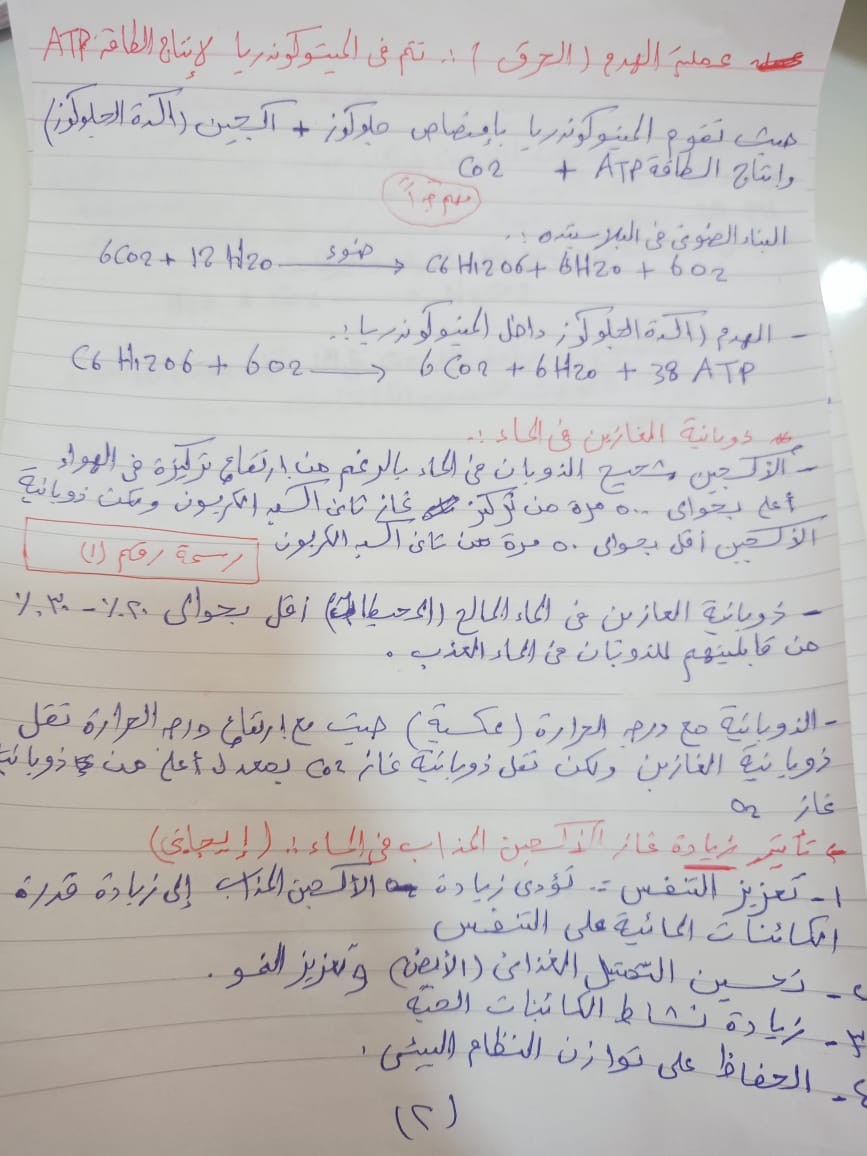 عملية الهدم (الحرق) :. تتم فى الميتوكوندريا لإنتاج الطاقة ATP
حيث تقوم الميتوكوندريا بإمتصاص جلوكوز + اكسجين (اكسدة الجلوكوز)
وانتاج الطاقة ATP + CO2
مهم جداً
البناء الضوئى فى البلاستيده :.
6CO2 + 12 H2O ضوء → C6H12O6 + 6H2O + 6O2
- الهدم (اكسدة الجلوكوز داخل الميتوكوندريا :.
C6H12O6 + 6O2 → 6CO2 + 6H2O + 38 ATP
* ذوبانية الغازين فى الماء :.
- الأكسجين شحيح الذوبان فى الماء بالرغم من إرتفاع تركيزة فى الهواء
أعلى بحوالى ٥٠٠ مرة من تركيز غاز ثانى اكسيد الكربون ولكن ذوبانية
الأكسجين أقل بحوالى ٥٠ مرة من ثانى اكسيد الكربون
رسمة رقم (١)
- ذوبانية الغازين فى الماء المالح (المحيطات) أقل بحوالى ٢٠٪ - ٣٠٪
من قابليتهم للذوبان فى الماء العذب .
- الذوبانية مع درجه الحرارة (عكسية) حيث مع إرتفاع درجه الحرارة تقل
ذوبانية الغازين ولكن تقل ذوبانية غاز CO2 بمعدل أعلى من ذوبانية
غاز O2
تأثير زيادة غاز الأكسجين المذاب فى الماء :. (إيجابى)
١- تعزيز التنفس :. تؤدى زيادة الأكسجين المذاب إلى زيادة قدرة
الكائنات المائية على التنفس
٢- تحسين التمثيل الغذائى (الأيض) وتعزيز النمو .
٣- زيادة نشاط الكائنات الحية
٤- الحفاظ على توازن النظام البيئى .
(٢)